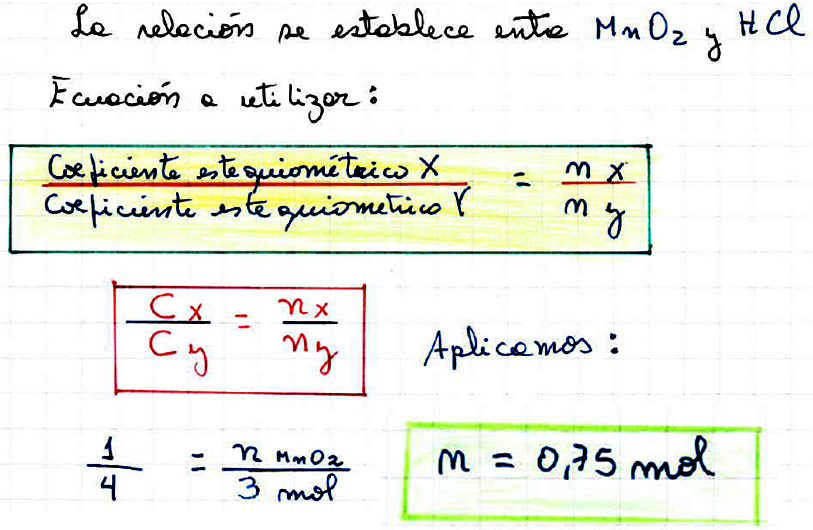 La relación se establece entre MnO₂ y HCl
Ecuación a utilizar:
Coeficiente estequiométrico X / Coeficiente estequiometrico Y = n x / n y
C x / C y = n x / n y
Aplicamos:
1 / 4 = n MnO₂ / 3 mol
n = 0,75 mol